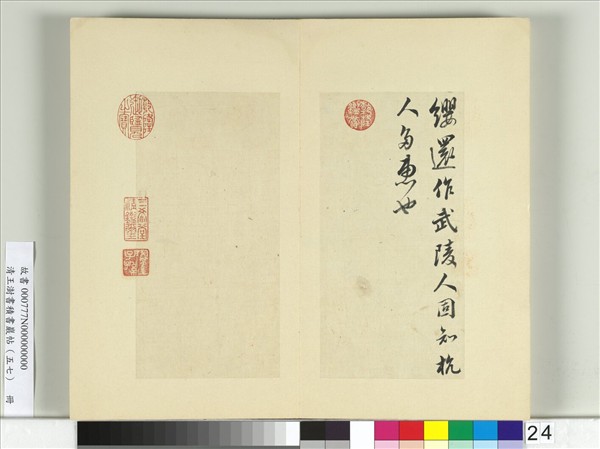 纓還作武陵人固知杭
人多惠也
故書 000777N000000000
清王澍書積書巖帖（五七） 冊
24